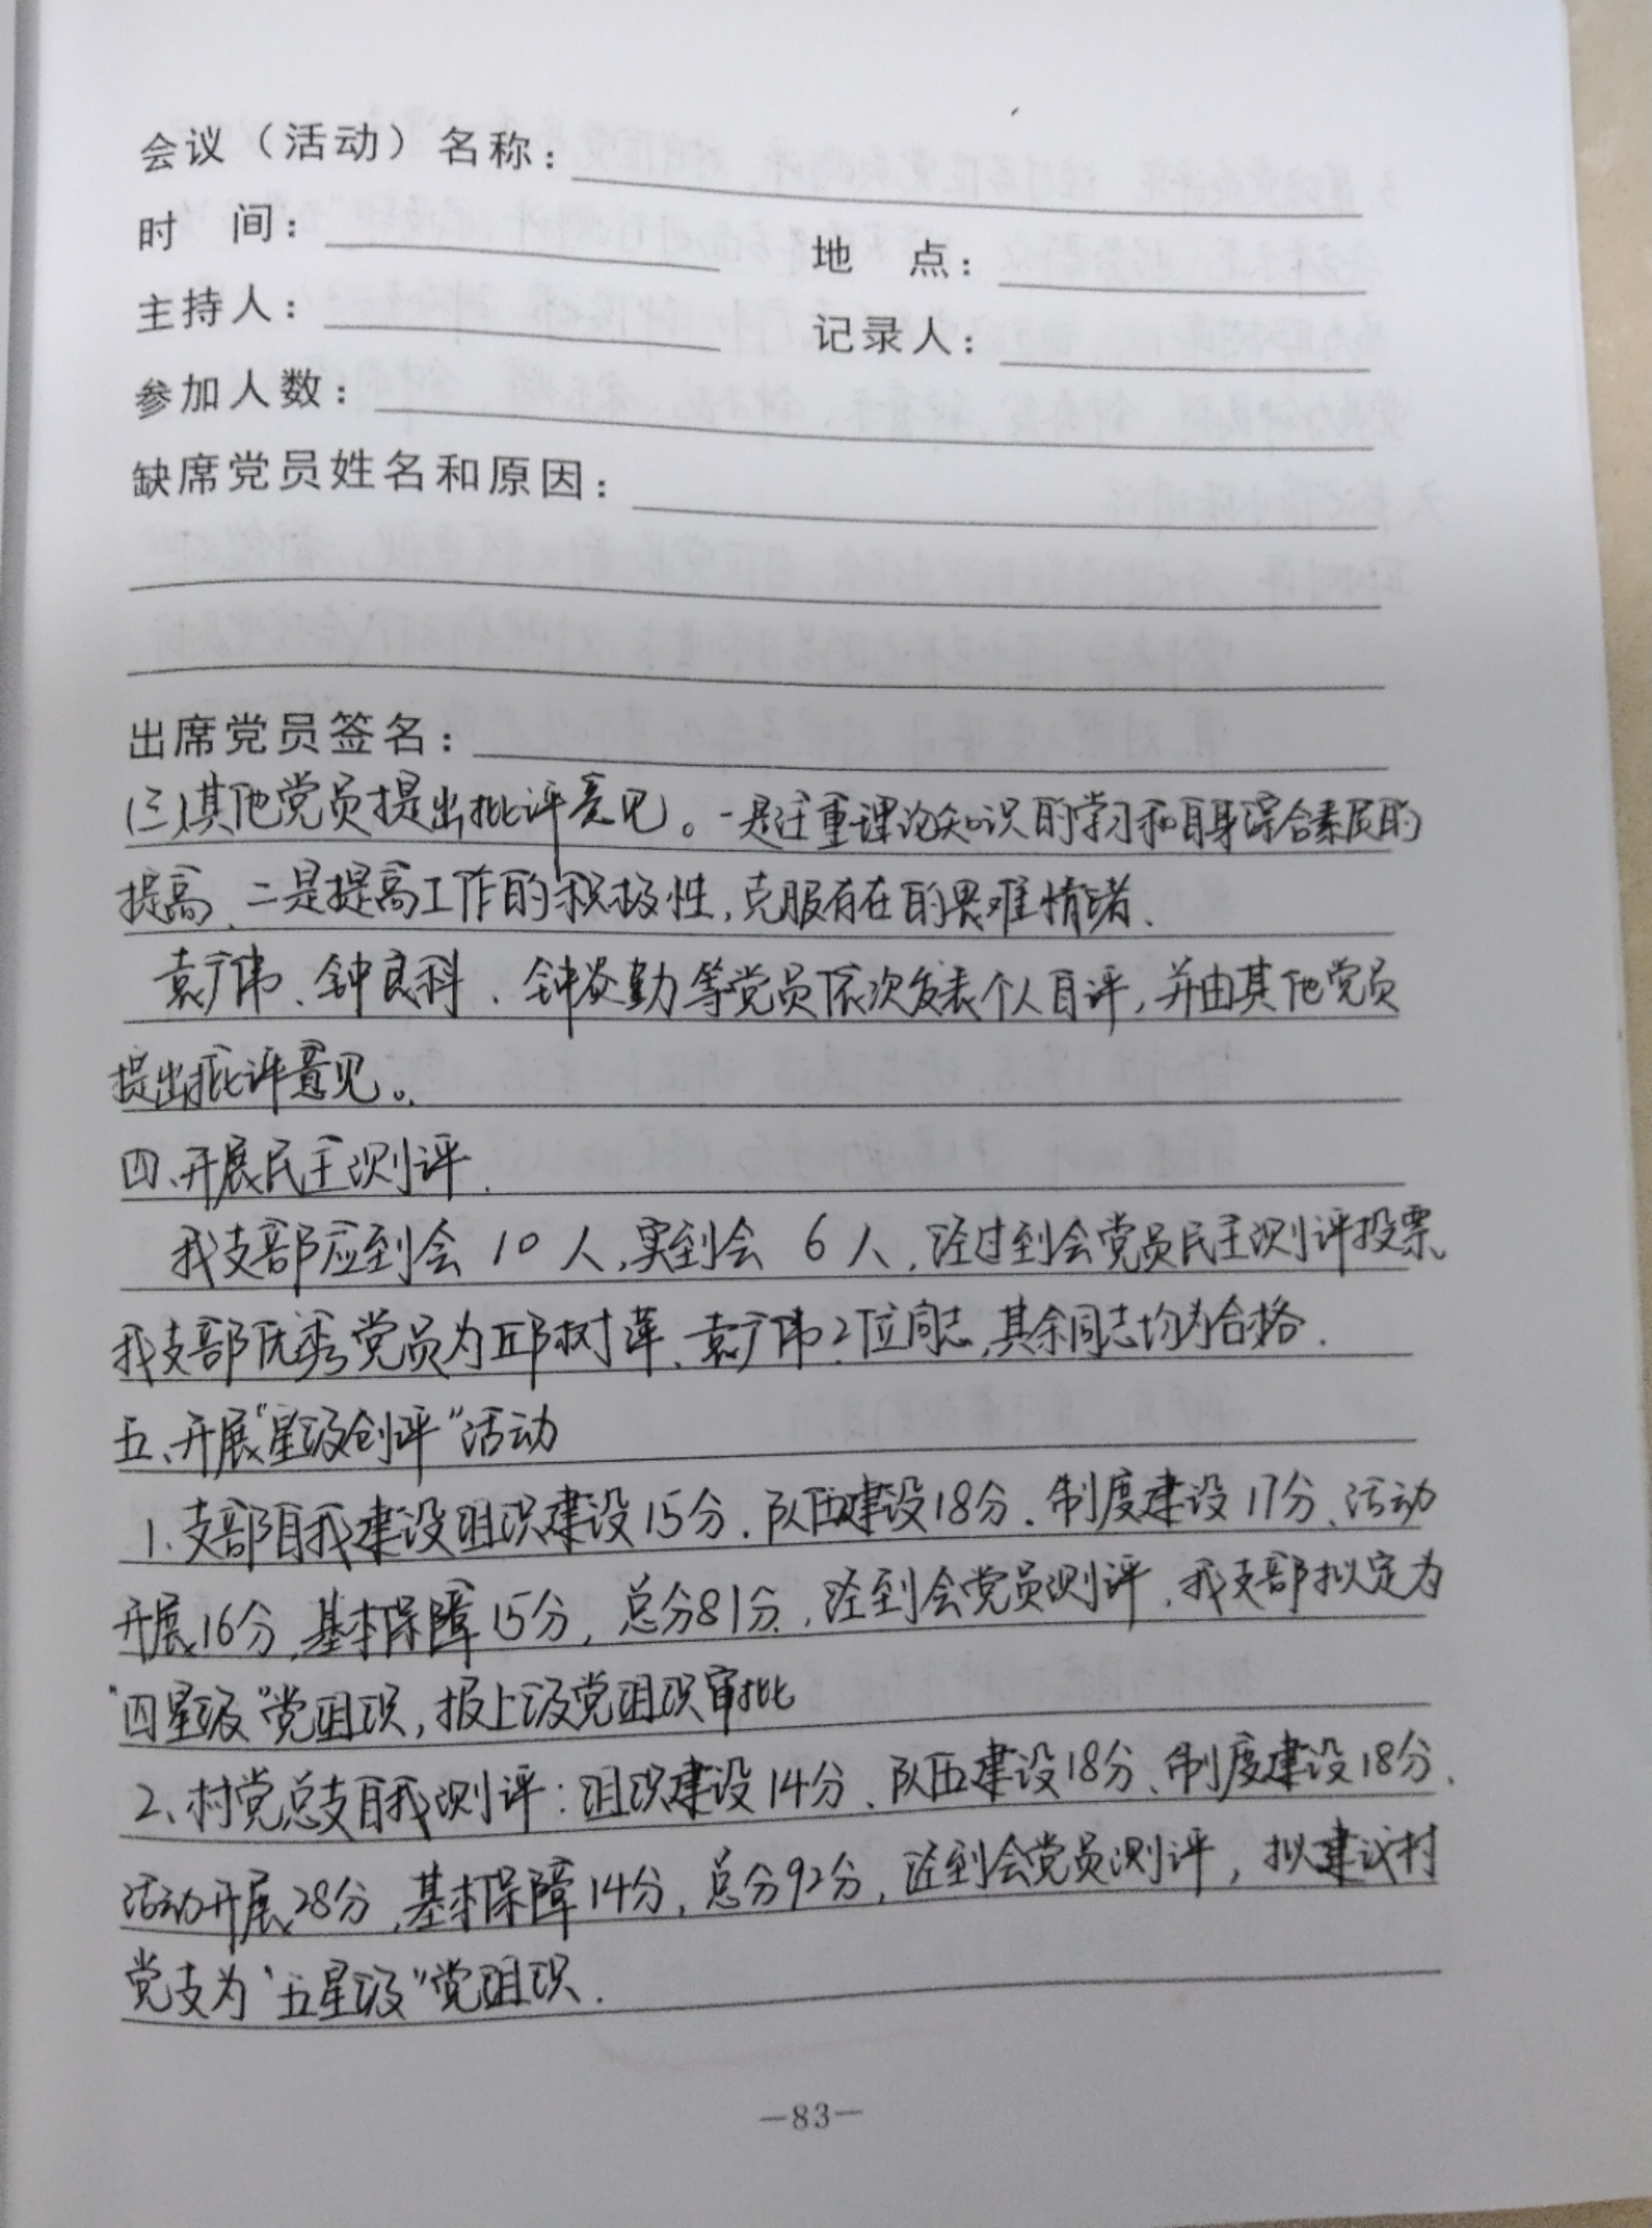 会议（活动）名称：
时 间：
地 点：
主持人：
记录人：
参加人数：
缺席党员姓名和原因：
出席党员签名：
(三)其他党员提出批评意见。一是注重理论知识的学习和自身综合素质的
提高、二是提高工作的积极性,克服存在的畏难情绪、
袁广伟、钟良科、钟炎勤等党员依次发表个人自评,并由其他党员
提出批评意见。
四、开展民主测评.
我支部应到会 10 人,实到会 6 人,经过到会党员民主测评投票、
我支部优秀党员为邱树萍、袁广伟2位同志,其余同志均为合格.
五、开展“星级创评”活动
1、支部自我建设组织建设15分、队伍建设18分、制度建设17分、活动
开展16分,基本保障15分,总分81分,经到会党员测评,我支部拟定为
“四星级”党组织,报上级党组织审批
2、村党总支自我测评:组织建设14分、队伍建设18分、制度建设18分、
活动开展28分,基本保障14分,总分92分,经到会党员测评,拟建议村
党支为“五星级”党组织.
—83—